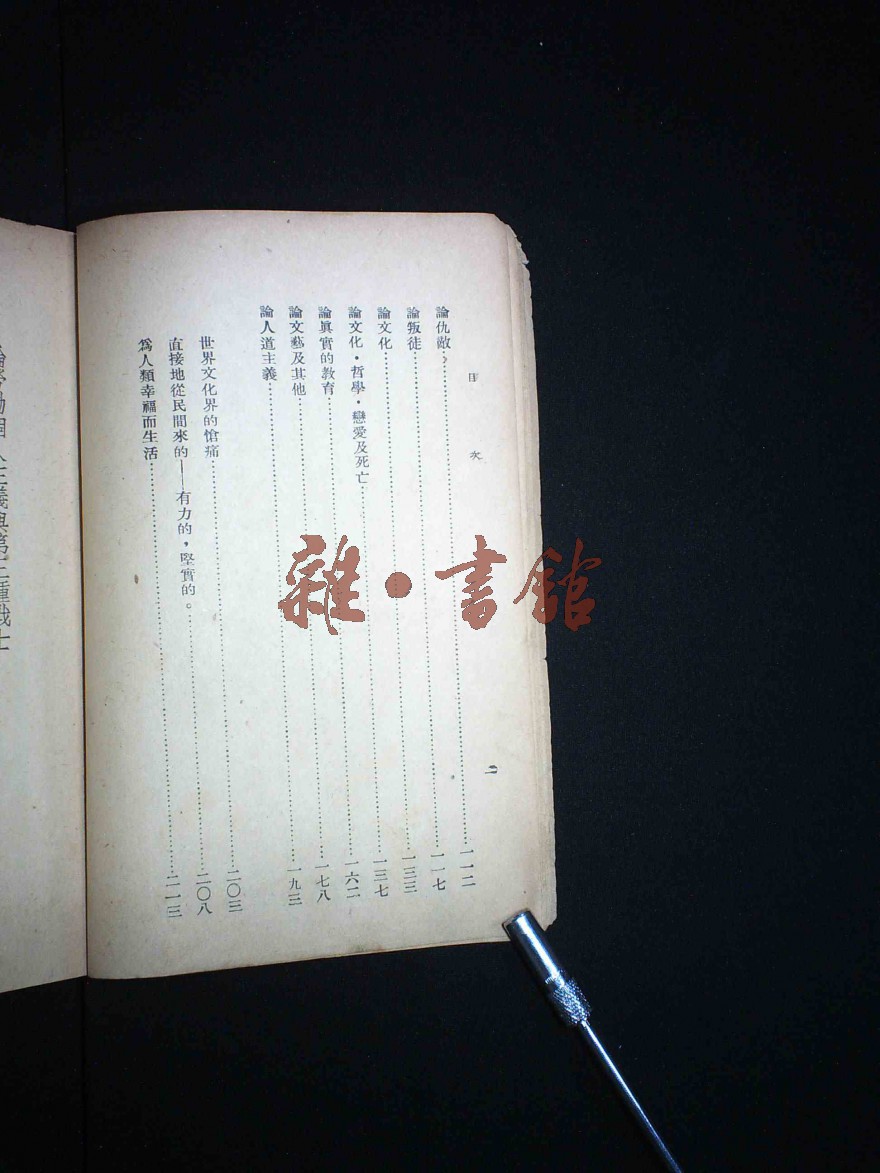 目次 二
論仇敵……一一二
論叛徒……一一七
論文化……一三三
論文化・哲學・戀愛及死亡……一三七
論眞實的教育……一六二
論文藝及其他……一七八
論人道主義……一九三
世界文化界的愴痛……二〇三
直接地從民間來的——有力的，堅實的。……二〇八
爲人類幸福而生活……二一三
雜・書館